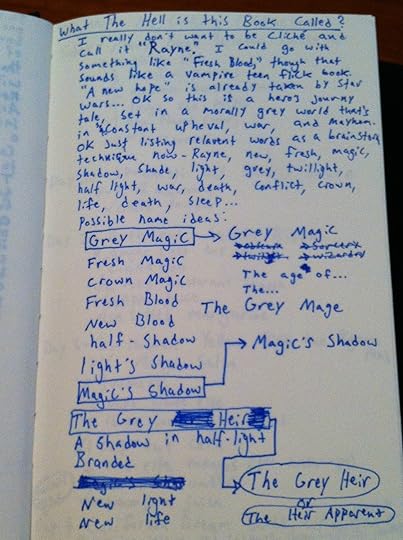 What The Hell is this Book Called?
I really don't want to be Cliché and
call it "Rayne." I could go with
something like "Fresh Blood," though that
sounds like a vampire teen flick book.
"A new hope" is already taken by Star
Wars... OK so this is a heros journy
tale, set in a morally grey world that's
in a constant upheval, war, and mayhem.
OK Just listing relevent words as a brainstorm
technique now - Rayne, new, fresh, magic,
shadow, shade, light, grey, twilight,
half light, war, death, conflict, crown,
life, death, sleep...
Possible name ideas:
Grey Magic
Fresh Magic
Crown Magic
Fresh Blood
New Blood
half-Shadow
light's Shadow
Magic's Shadow
The Grey Heir
A Shadow in half-light
Branded
New light
New life
Grey Magic
Sorcery
wizardry
The age of...
The...
The Grey Mage
Magic's Shadow
The Grey Heir
or
The Heir Apparent